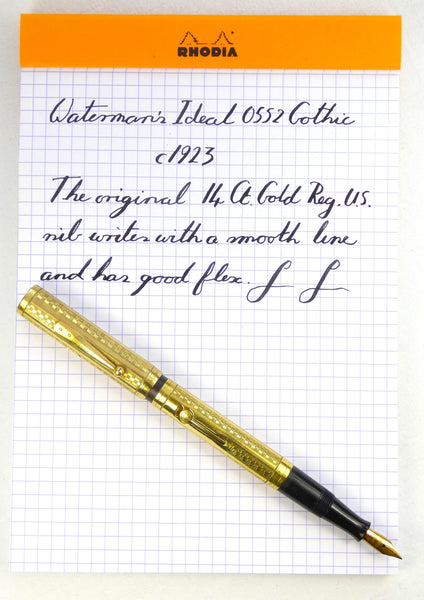 RHODIA
Waterman's Ideal 0552 Gothic
c1923
The original 14 Ct Gold Reg. U.S.
nib writes with a smooth line
and has good flex.